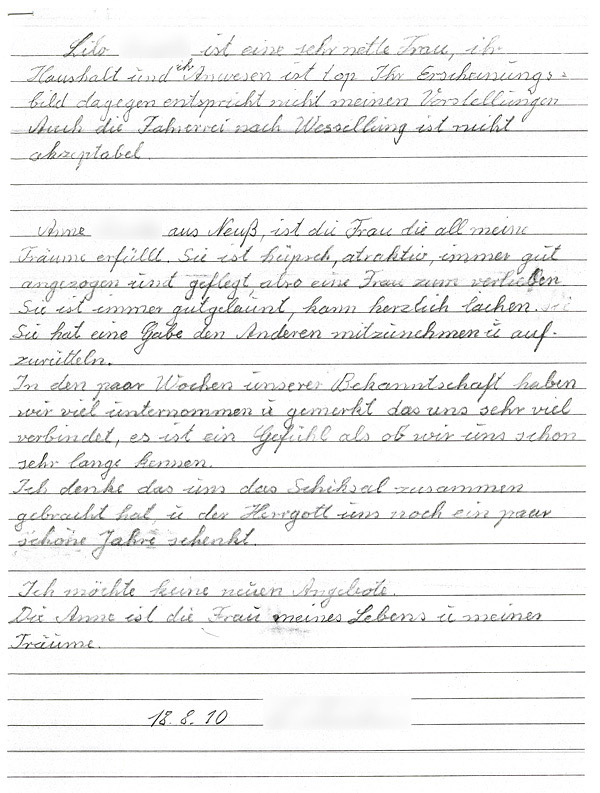 Lilo ist eine sehr nette Frau, ihr
Haushalt und ihr Anwesen ist top Ihr Erscheinungs-
bild dagegen entspricht nicht meinen Vorstellungen
Auch die Fahrerei nach Wesselling ist nicht
akzeptabel.
Anne aus Neuß, ist die Frau die all meine
Träume erfüllt. Sie ist hüpsch, atraktiv, immer gut
angezogen und geflegt also eine Frau zum verlieben
Sie ist immer gutgelaunt, kann herzlich lachen.
Sie hat eine Gabe den Anderen mitzunehmen u auf-
zurütteln.
In den paar Wochen unserer Bekanntschaft haben
wir viel unternommen u gemerkt das uns sehr viel
verbindet, es ist ein Gefühl als ob wir uns schon
sehr lange kennen.
Ich denke das uns das Schiksal zusammen
gebracht hat u der Herrgott uns noch ein paar
schöne Jahre schenkt.
Ich möchte keine neuen Angebote.
Die Anne ist die Frau meines Lebens u meiner
Träume.
18.8.10